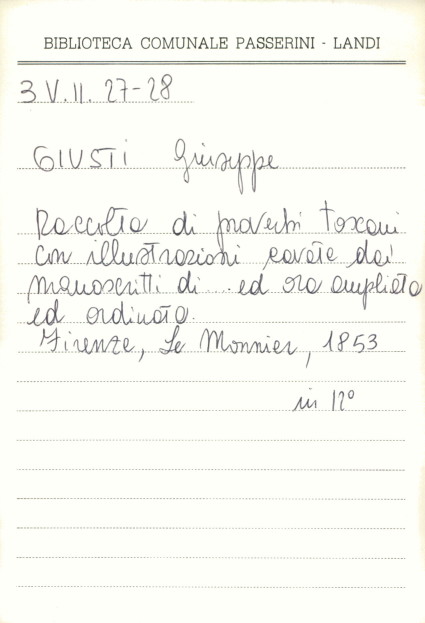 BIBLIOTECA COMUNALE PASSERINI - LANDI
3 V. II. 27-28
GIUSTI Giuseppe
Raccolta di proverbi toscani
con illustrazioni cavate dai
manoscritti di .. ed ora ampliata
ed ordinata.
Firenze, Le Monnier, 1853
in 12º